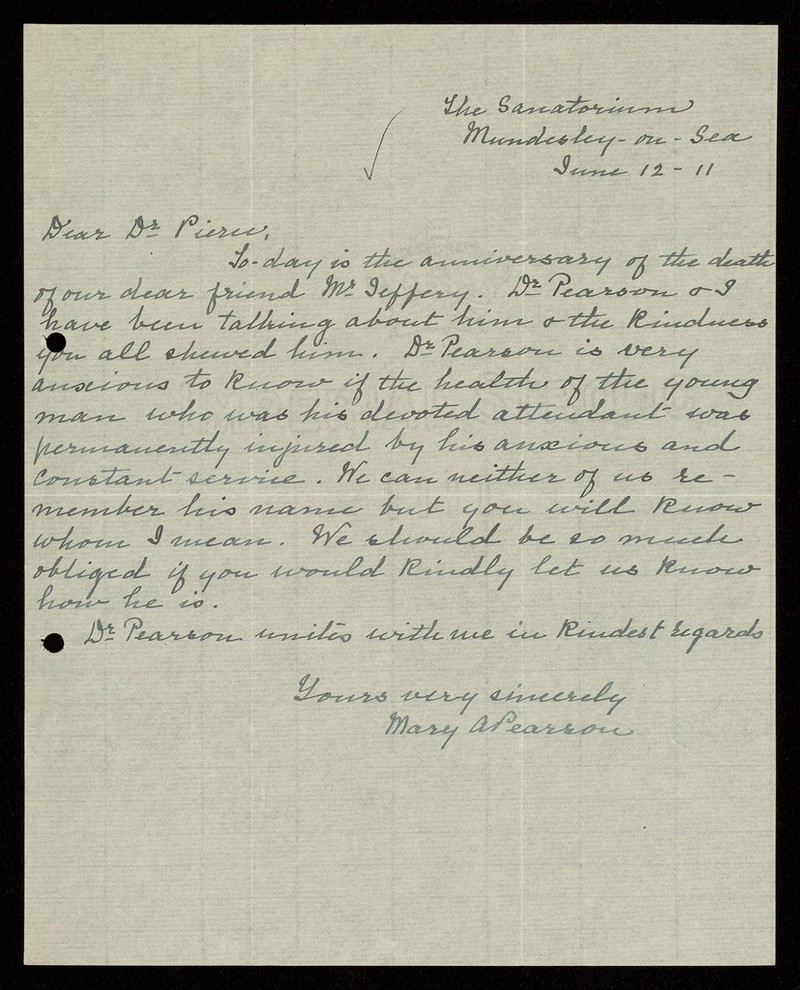 The Sanatorium
Mundesley-on-Sea
June 12-11
Dear Dr. Pierce,
To-day is the anniversary of the death
of our dear friend Mr. Jeffery. Dr. Pearson & I
have been talking about him & the kindness
you all shewed him. Dr. Pearson is very
anxious to know if the health of the young
man who was his devoted attendant was
permanently injured by his anxious and
constant service. We can neither of us re-
member his name but you will know
whom I mean. We should be so much
obliged if you would kindly let us know
how he is.
Dr. Pearson unites with me in kindest regards
Yours very sincerely
Mary A Pearson